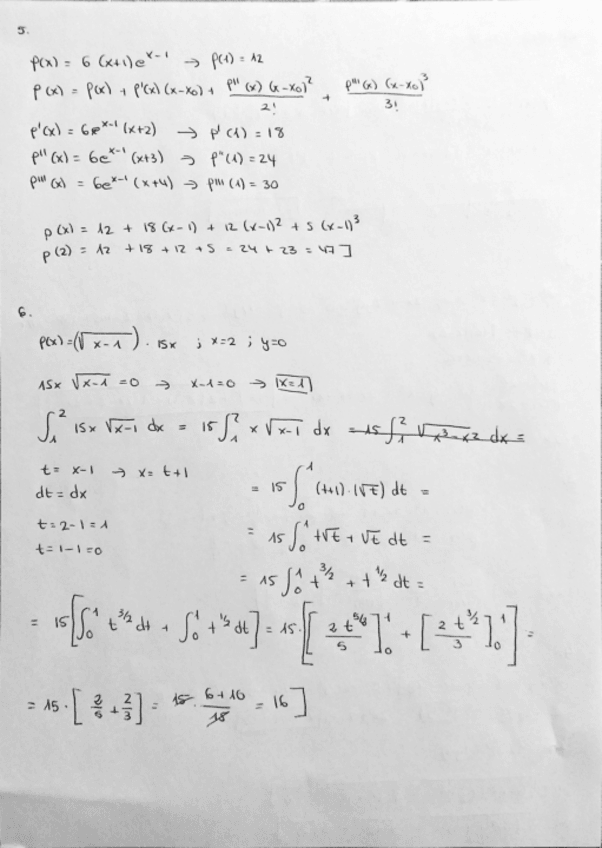 5.
p(x) = 6 (x+1)e^{x-1} → p(1) = 12
P(x) = p(x) + p'(x)(x-x₀) + \frac{p''(x)(x-x₀)^2}{2!} + \frac{p'''(x)(x-x₀)^3}{3!}
p'(x) = 6e^{x-1}(x+2) → p'(1) = 18
p''(x) = 6e^{x-1}(x+3) → p''(1) = 24
p'''(x) = 6e^{x-1}(x+4) → p'''(1) = 30
p(x) = 12 + 18(x-1) + 12(x-1)² + 5(x-1)³
p(2) = 12 + 18 + 12 + 5 = 24 + 23 = 47]
6.
p(x) = (√(x-1)) · 15x ; x=2 ; y=0
15x √(x-1) = 0 → x-1=0 → x=1
∫₁² 15x √(x-1) dx = 15 ∫₁² x √(x-1) dx = 15 ∫₁² √(x³-x²) dx =
t = x-1 → x = t+1
dt = dx
= 15 ∫₀¹ (t+1)·(√t) dt =
t = 2-1 = 1
t = 1-1 = 0
= 15 ∫₀¹ t√t + √t dt =
= 15 ∫₀¹ t^{3/2} + t^{1/2} dt =
= 15 [∫₀¹ t^{3/2} dt + ∫₀¹ t^{1/2} dt] = 15·[[\frac{2 t^{5/2}}{5}]₀¹ + [\frac{2 t^{3/2}}{3}]₀¹] =
= 15 · [\frac{2}{5} + \frac{2}{3}] = 15 · \frac{6+10}{15} = 16]